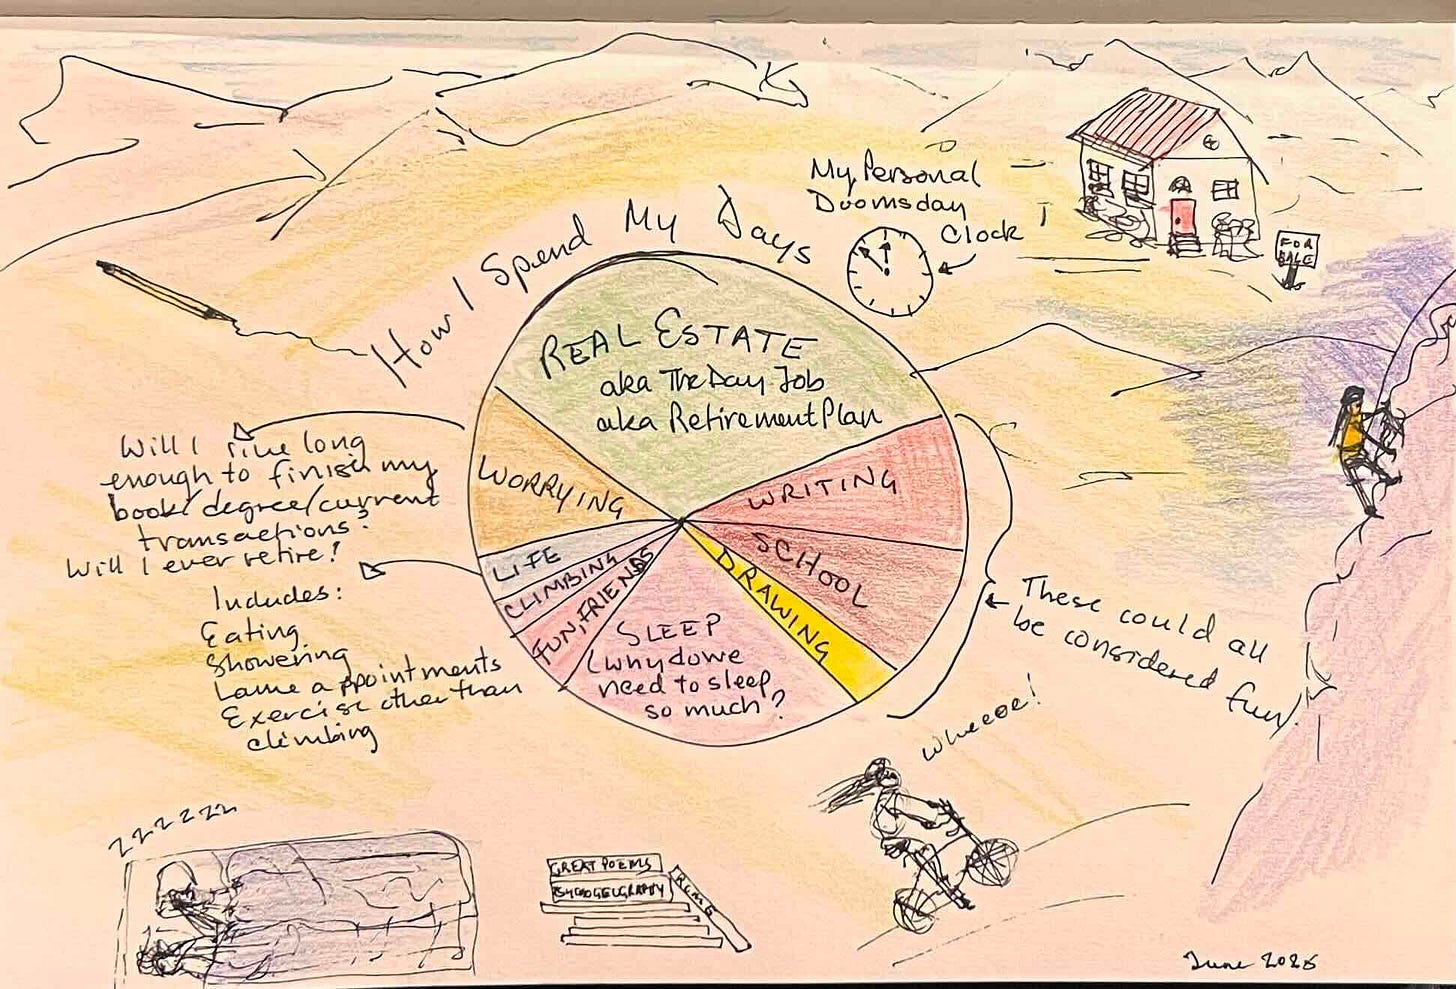 How I Spend My Days
My Personal
Doomsday
Clock
FOR
SALE
REAL ESTATE
aka The Day Job
aka Retirement Plan
WORRYING
WRITING
LIFE
SCHOOL
CLIMBING
DRAWING
FUN, FRIENDS
SLEEP
(why do we
need to sleep
so much?
Will I live long
enough to finish my
book/degree/current
transactions?
Will I ever retire?
Includes:
Eating
Showering
Lame appointments
Exercise other than
climbing
These could all
be considered fun!
Wheeee!
zzzzzzz
GREAT POEMS
PSYCHOGEOGRAPHY
June 2025